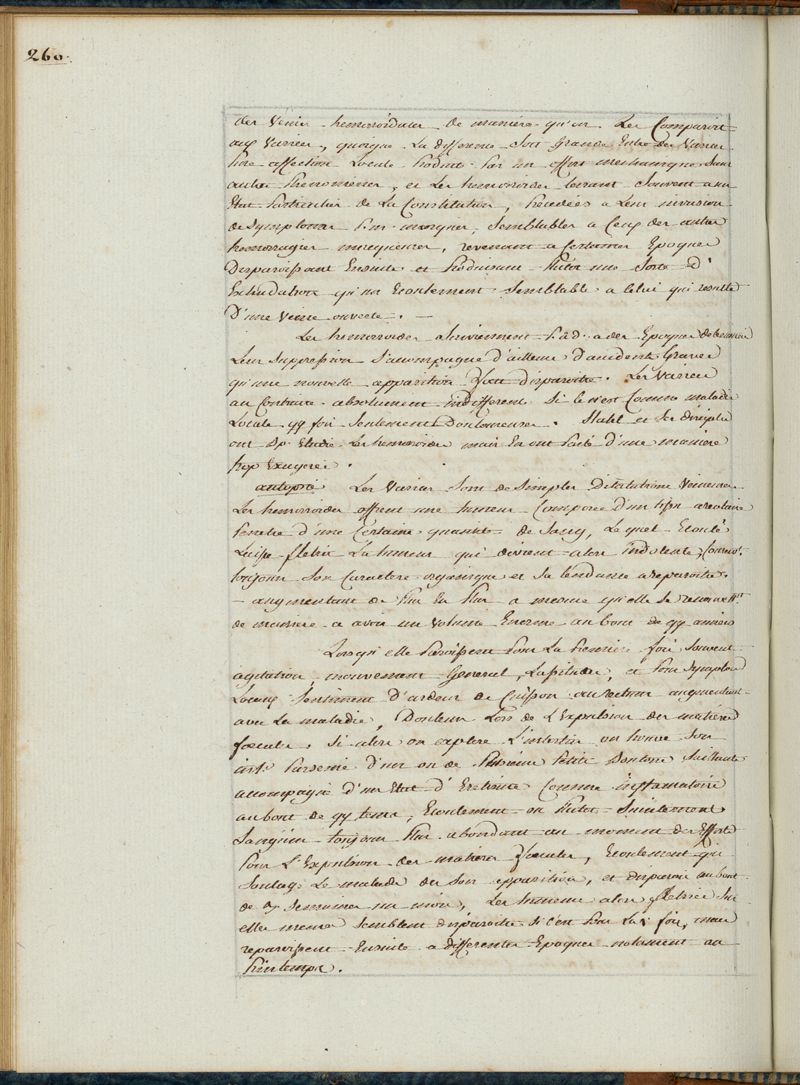 260.
des Veines hemorroïdales de maniere qu'on Les Comparoit
aux Varices, quoique La difference Soit Grande Entre des Varices
pure affection Locale produite par un effort mechanique Sans
autres phenomenes, et Les hemorroides tenant Souvent a un
Etat particulier de La Constitution, precedées a Leur invasion
de Symptomes semblables a Ceux des autres
hemorragies revenant a Certaines Epoques
Disparoissant Ensuite et produisant plutot une Sorte d'
Exhudation qu'un Ecoulement Semblable a Celui qui resulte
D'une Veine ouverte. —
Les hemorroides Surviennent p. à d. a des Epoques determinées
Leur Suppression S'accompagne d'ailleurs D'accidents Graves
qu'une nouvelle apparition fait disparoitre. Les Varices
au Contraire absolument indifferentes Si Ce n'est Comme maladie
Locale qq fois Seulement Douloureuses. Stahl et Ses disciples
ont Bp. Etudié Les hemorroides mais En ont parlé d'une maniere
trop Exagerée.
autopsie Les Varices Sont de Simples Dilatations Veineuses
Les hemorroides offrent une tumeur Composée d'un tissu areolaire
penetré d'une Certaine quantité de Sang, Lequel Ecoulé
Laisse fletrir La tumeur qui devient alors indolente, Conserve
toujours Son Caractere organique et Sa tendance a reparoitre
— augmentant de plus En plus a mesure qu'elle Se renouvelle
de maniere a avoir un Volume Enorme au bout de qq années
Lorsqu'elle Paroissent Pour La Premiere fois Souvent
agitation, mouvement General, Lassitudes, et Pour Symptomes
Locaux Sentiment D'ardeur de Cuisson au rectum augmentant
avec La maladie, Douleur Lors de L'Expulsion des matieres
foecales. Si alors on explore L'intestin on trouve Son
parsemé d'un ou de plusieurs petits Boutons Saillants
accompagné d'un Etat d'Eretisme Comme inflamatoire
au bout de qq tems, Ecoulement ou plutot Suintement
Sanguin toujours plus abondant au moment des Efforts
Pour L'Expulsion des matieres foecales, Ecoulement qui
Soulage Le malade des Son apparition, et disparoit au bout
de Semaines un mois, Les tumeurs alors fletries Sur
elles memes Semblent disparoitre Si C'est Pour La 1re fois, mais
reparoissent Ensuite a differentes Epoques notament au
Printemps.